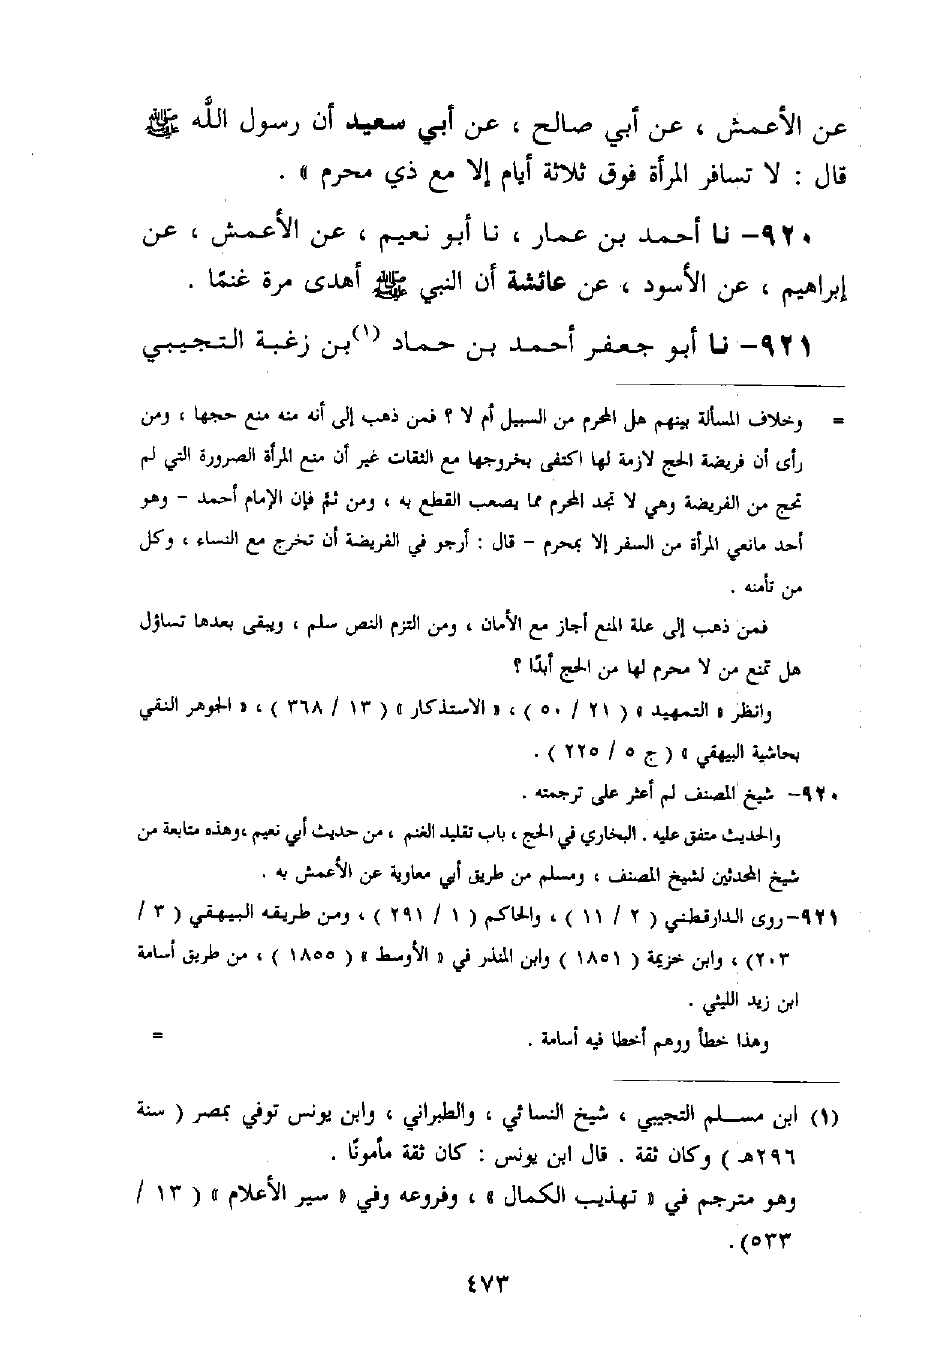 عن الأعمش ، عن أبي صالح ، عن أبي سعيد أن رسول الله ﷺ
قال : لا تسافر المرأة فوق ثلاثة أيام إلا مع ذي محرم » .
٩٢٠- نا أحمد بن عمار ، نا أبو نعيم ، عن الأعمش ، عن
إبراهيم ، عن الأسود ، عن عائشة أن النبي ﷺ أهدى مرة غنمًا .
٩٢١- نا أبو جعفر أحمد بن حماد (١) بن زغبة التجيبي
= وخلاف المسألة بينهم هل المحرم من السبيل أم لا ؟ فمن ذهب إلى أنه منه منع حجها ، ومن
رأى أن فريضة الحج لازمة لها اكتفى بخروجها مع الثقات غير أن منع المرأة الصرورة التي لم
تحج من الفريضة وهي لا تجد المحرم مما يصعب القطع به ، ومن ثم فإن الإمام أحمد - وهو
أحد مانعي المرأة من السفر إلا بمحرم - قال : أرجو في الفريضة أن تخرج مع النساء ، وكل
من تأمنه .
فمن ذهب إلى علة المنع أجاز مع الأمان ، ومن التزم النص سلم ، ويبقى بعدها تساؤل
هل تمنع من لا محرم لها من الحج أبدًا ؟
وانظر « التمهيد » ( ٢١ / ٥٠ ) ، « الاستذكار » ( ١٣ / ٣٦٨ ) ، « الجوهر النقي
بحاشية البيهقي » ( ج ٥ / ٢٢٥ ) .
٩٢٠- شيخ المصنف لم أعثر على ترجمته .
والحديث متفق عليه . البخاري في الحج ، باب تقليد الغنم ، من حديث أبي نعيم ،وهذه متابعة من
شيخ المحدثين لشيخ المصنف ، ومسلم من طريق أبي معاوية عن الأعمش به .
٩٢١-روى الدارقطني ( ٢ / ١١ ) ، والحاكم ( ١ / ٢٩١ ) ، ومن طريقه البيهقي ( ٣ /
٢٠٣) ، وابن خزيمة ( ١٨٥١ ) وابن المنذر في « الأوسط » ( ١٨٥٥ ) ، من طريق أسامة
ابن زيد الليثي .
وهذا خطأ ووهم أخطا فيه أسامة . =
(١) ابن مسلم التجيبي ، شيخ النسائي ، والطبراني ، وابن يونس توفي بمصر ( سنة
٢٩٦هـ ) وكان ثقة . قال ابن يونس : كان ثقة مأمونًا .
وهو مترجم في « تهذيب الكمال » ، وفروعه وفي « سير الأعلام » ( ١٣ /
٥٣٣) .
٤٧٣